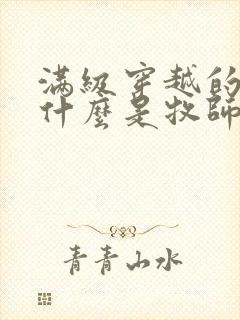 滿級穿越的
什麼是牧師
青青山水